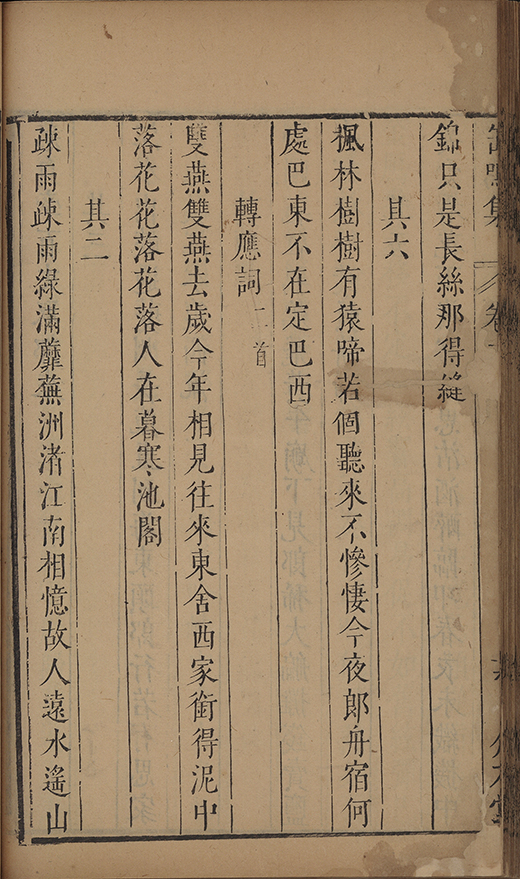 錦只是長絲那得縫
其六
楓林樹樹有猿啼若個聽來不慘悽今夜郎舟宿何
處巴東不在定巴西
轉應詞二首
雙燕雙燕去歲今年相見往來東舍西家銜得泥中
落花花落花落人在暮寒池閣
其二
疎雨疎雨綠滿蘼蕪洲渚江南相憶故人遠水遙山